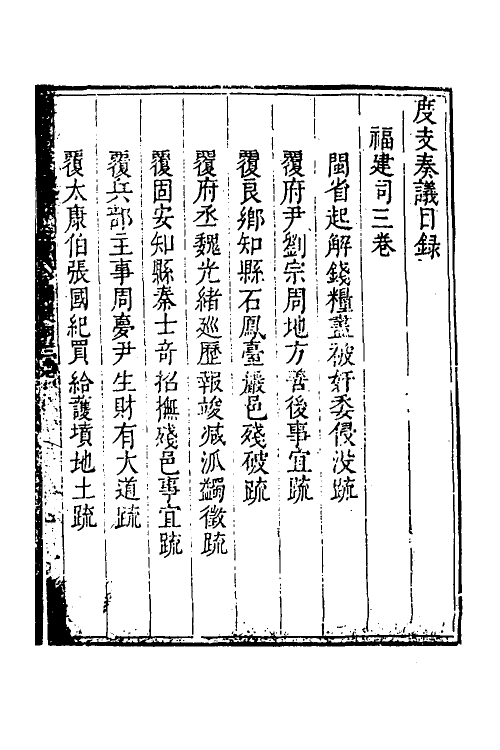 度支奏議目録
福建司三巻
閩省起解錢糧盡被奸委侵没疏
覆府尹劉宗周地方善後事宜疏
覆良鄉知縣石鳳臺嚴邑殘破疏
覆府丞魏光緒巡歷報竣減派蠲徵疏
覆固安知縣秦士奇招撫殘邑事宜疏
覆兵部主事周慶尹生財有大道疏
覆太康伯張國紀買給護墳地土疏